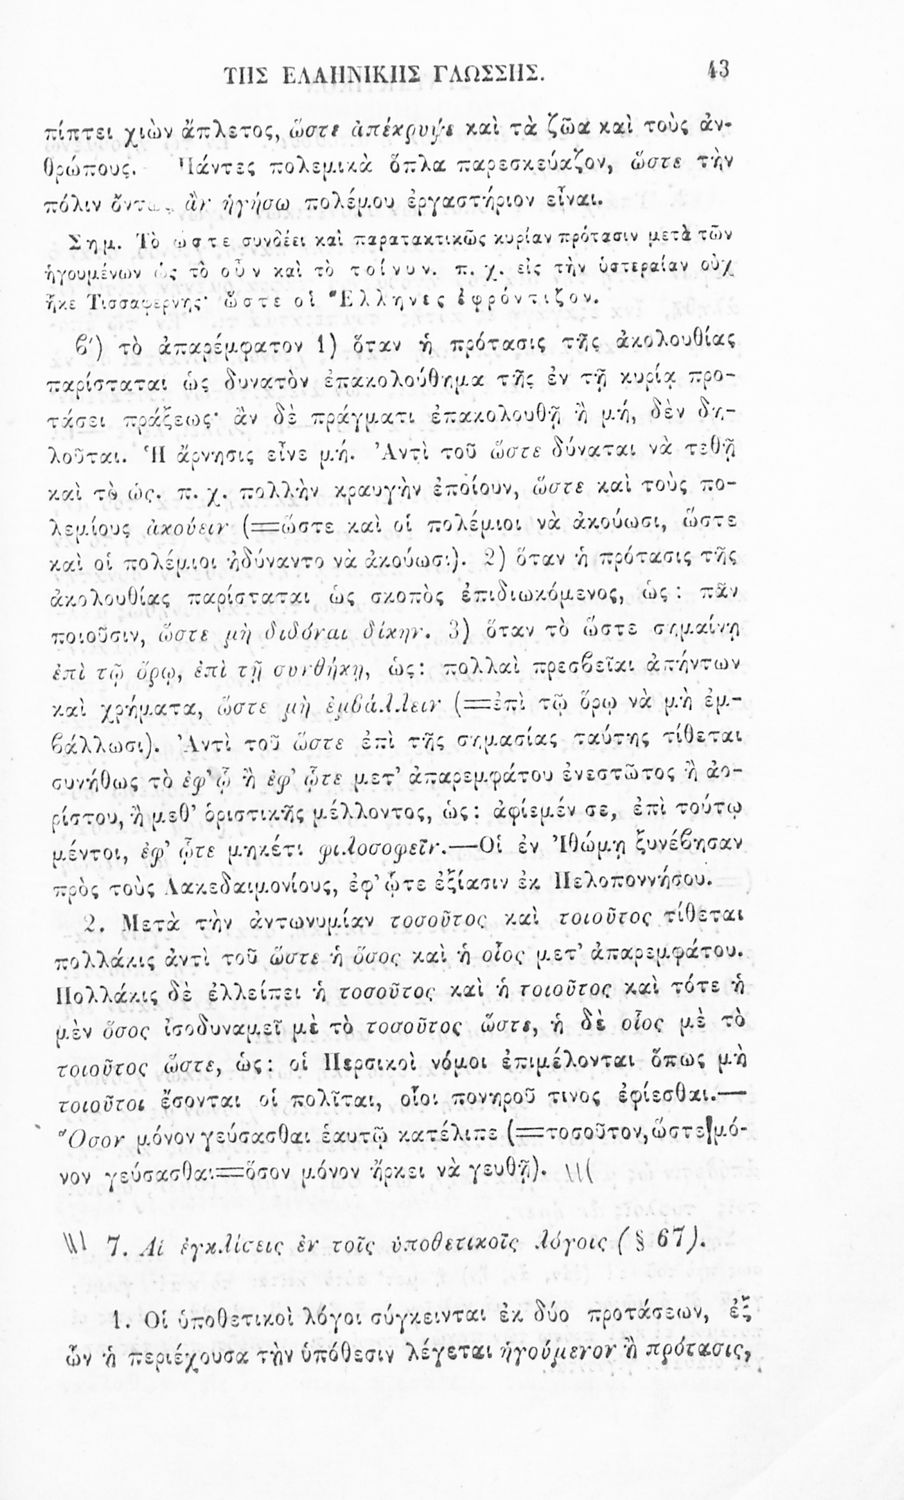 ΤΗΣ ΕΛΛΗΝΙΚΗΣ ΓΛΩΣΣΗΣ. 43
πίπτει χιὼν ἄπλετος, ὥστε ἀπέκρυψε καὶ τὰ ζῶα καὶ τοὺς ἀν-
θρώπους. Πάντες πολεμικὰ ὅπλα παρεσκεύαζον, ὥστε τὴν
πόλιν ὄντως ἂν ἡγήσω πολέμου ἐργαστήριον εἶναι.
Σημ. Τὸ ὥστε συνδέει καὶ παρατακτικῶς κυρίαν πρότασιν μετὰ τῶν
ἡγουμένων ὡς τὸ οὖν καὶ τὸ τοίνυν. π. χ. εἰς τὴν ὑστεραίαν οὐχ
ἧκε Τισσαφέρνης· ὥστε οἱ Ἕλληνες ἐφρόντιζον.
β′) τὸ ἀπαρέμφατον 1) ὅταν ἡ πρότασις τῆς ἀκολουθίας
παρίσταται ὡς δυνατὸν ἐπακολούθημα τῆς ἐν τῇ κυρίᾳ προ-
τάσει πράξεως· ἂν δὲ πράγματι ἐπακολουθῇ ἢ μή, δὲν δη-
λοῦται. Ἡ ἄρνησις εἶνε μή. Ἀντὶ τοῦ ὥστε δύναται νὰ τεθῇ
καὶ τὸ ὡς. π. χ. πολλὴν κραυγὴν ἐποίουν, ὥστε καὶ τοὺς πο-
λεμίους ἀκούειν (=ὥστε καὶ οἱ πολέμιοι νὰ ἀκούωσι, ὥστε
καὶ οἱ πολέμιοι ἠδύναντο νὰ ἀκούωσι). 2) ὅταν ἡ πρότασις τῆς
ἀκολουθίας παρίσταται ὡς σκοπὸς ἐπιδιωκόμενος, ὡς: πᾶν
ποιοῦσιν, ὥστε μὴ διδόναι δίκην. 3) ὅταν τὸ ὥστε σημαίνῃ
ἐπὶ τῷ ὅρῳ, ἐπὶ τῇ συνθήκῃ, ὡς: πολλαὶ πρεσβεῖαι ἀπήντων
καὶ χρήματα, ὥστε μὴ ἐμβάλλειν (=ἐπὶ τῷ ὅρῳ νὰ μὴ ἐμ-
βάλλωσι). Ἀντὶ τοῦ ὥστε ἐπὶ τῆς σημασίας ταύτης τίθεται
συνήθως τὸ ἐφ' ᾧ ἢ ἐφ' ᾧτε μετ' ἀπαρεμφάτου ἐνεστῶτος ἢ ἀο-
ρίστου, ἢ μεθ' ὁριστικῆς μέλλοντος, ὡς: ἀφίεμέν σε, ἐπὶ τούτῳ
μέντοι, ἐφ' ᾧτε μηκέτι φιλοσοφεῖν.—Οἱ ἐν Ἰθώμῃ ξυνέβησαν
πρὸς τοὺς Λακεδαιμονίους, ἐφ' ᾧτε ἐξίασιν ἐκ Πελοποννήσου.
2. Μετὰ τὴν ἀντωνυμίαν τοσοῦτος καὶ τοιοῦτος τίθεται
πολλάκις ἀντὶ τοῦ ὥστε ἡ ὅσος καὶ ἡ οἷος μετ' ἀπαρεμφάτου.
Πολλάκις δὲ ἐλλείπει ἡ τοσοῦτος καὶ ἡ τοιοῦτος καὶ τότε ἡ
μὲν ὅσος ἰσοδυναμεῖ μὲ τὸ τοσοῦτος ὥστε, ἡ δὲ οἷος μὲ τὸ
τοιοῦτος ὥστε, ὡς: οἱ Περσικοὶ νόμοι ἐπιμέλονται ὅπως μὴ
τοιοῦτοι ἔσονται οἱ πολῖται, οἷοι πονηροῦ τινος ἐφίεσθαι.—
Ὅσον μόνον γεύσασθαι ἑαυτῷ κατέλιπε (=τοσοῦτον, ὥστε μό-
νον γεύσασθαι=ὅσον μόνον ἤρκει νὰ γευθῇ).
7. Αἱ ἐγκλίσεις ἐν τοῖς ὑποθετικοῖς λόγοις (§ 67).
1. Οἱ ὑποθετικοὶ λόγοι σύγκεινται ἐκ δύο προτάσεων, ἐξ
ὧν ἡ περιέχουσα τὴν ὑπόθεσιν λέγεται ἡγούμενον ἢ πρότασις,